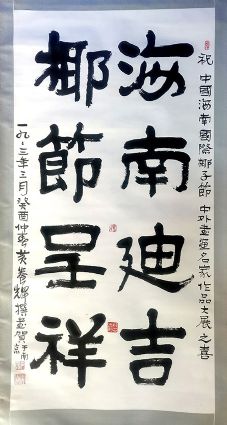 祝中國海南國際椰子節中外畫藝名家作品大展之喜
海南迪吉
椰節呈祥
一九九三年三月癸酉仲春黃養輝撰並賀